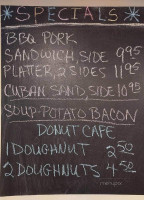 *SPECIALS*
BBQ PORK
SANDWICH, SIDE 9.95
PLATTER, 2 SIDES 11.95
CUBAN SAND, SIDE 10.95
SOUP-POTATO BACON
DONUT CAFE
1 DOUGHNUT 2.50
2 DOUGHNUTS 4.50